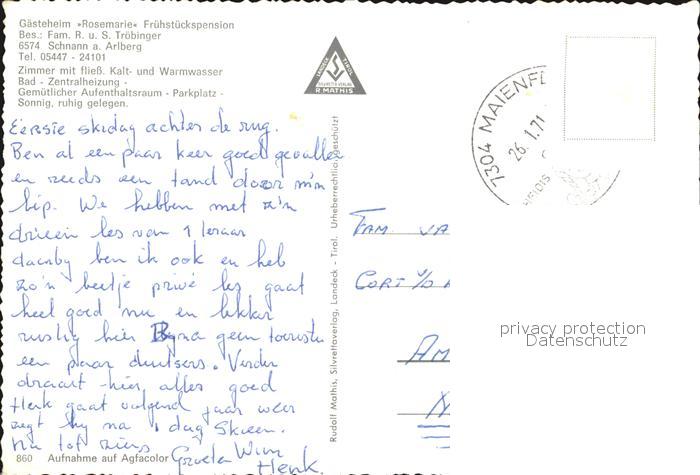 Gästeheim »Rosemarie« Frühstückspension
Bes.: Fam. R. u. S. Tröbinger
6574 Schnann a. Arlberg
Tel. 05447 - 24101
Zimmer mit fließ. Kalt- und Warmwasser
Bad - Zentralheizung -
Gemütlicher Aufenthaltsraum - Parkplatz -
Sonnig, ruhig gelegen.
LANDECK TIROL
SILVRETTA VERLAG
R. MATHIS
7304 MAIENF
26.1.71
HEIDIS
Eerste skidag achter de rug.
Ben al een paar keer goed gevallen
en reeds een tand door m'n
lip. We hebben met z'n
drieën les van 1 leraar
daarby ben ik ook en heb
zo'n beetje privé les gaat
heel goed nu en lekker
rustig hier Byna geen toeristen
een paar duitsers. Verder
draait hier alles goed
Henk gaat volgend jaar weer
zegt hy na 1 dag Skieën.
Nu tot ziens
Groeten Wim
Henk.
FAM. VA
CORT V/D
AM
N
Rudolf Mathis, Silvrettaverlag, Landeck - Tirol. Urheberrechtlich geschützt
860 Aufnahme auf Agfacolor
privacy protection
Datenschutz